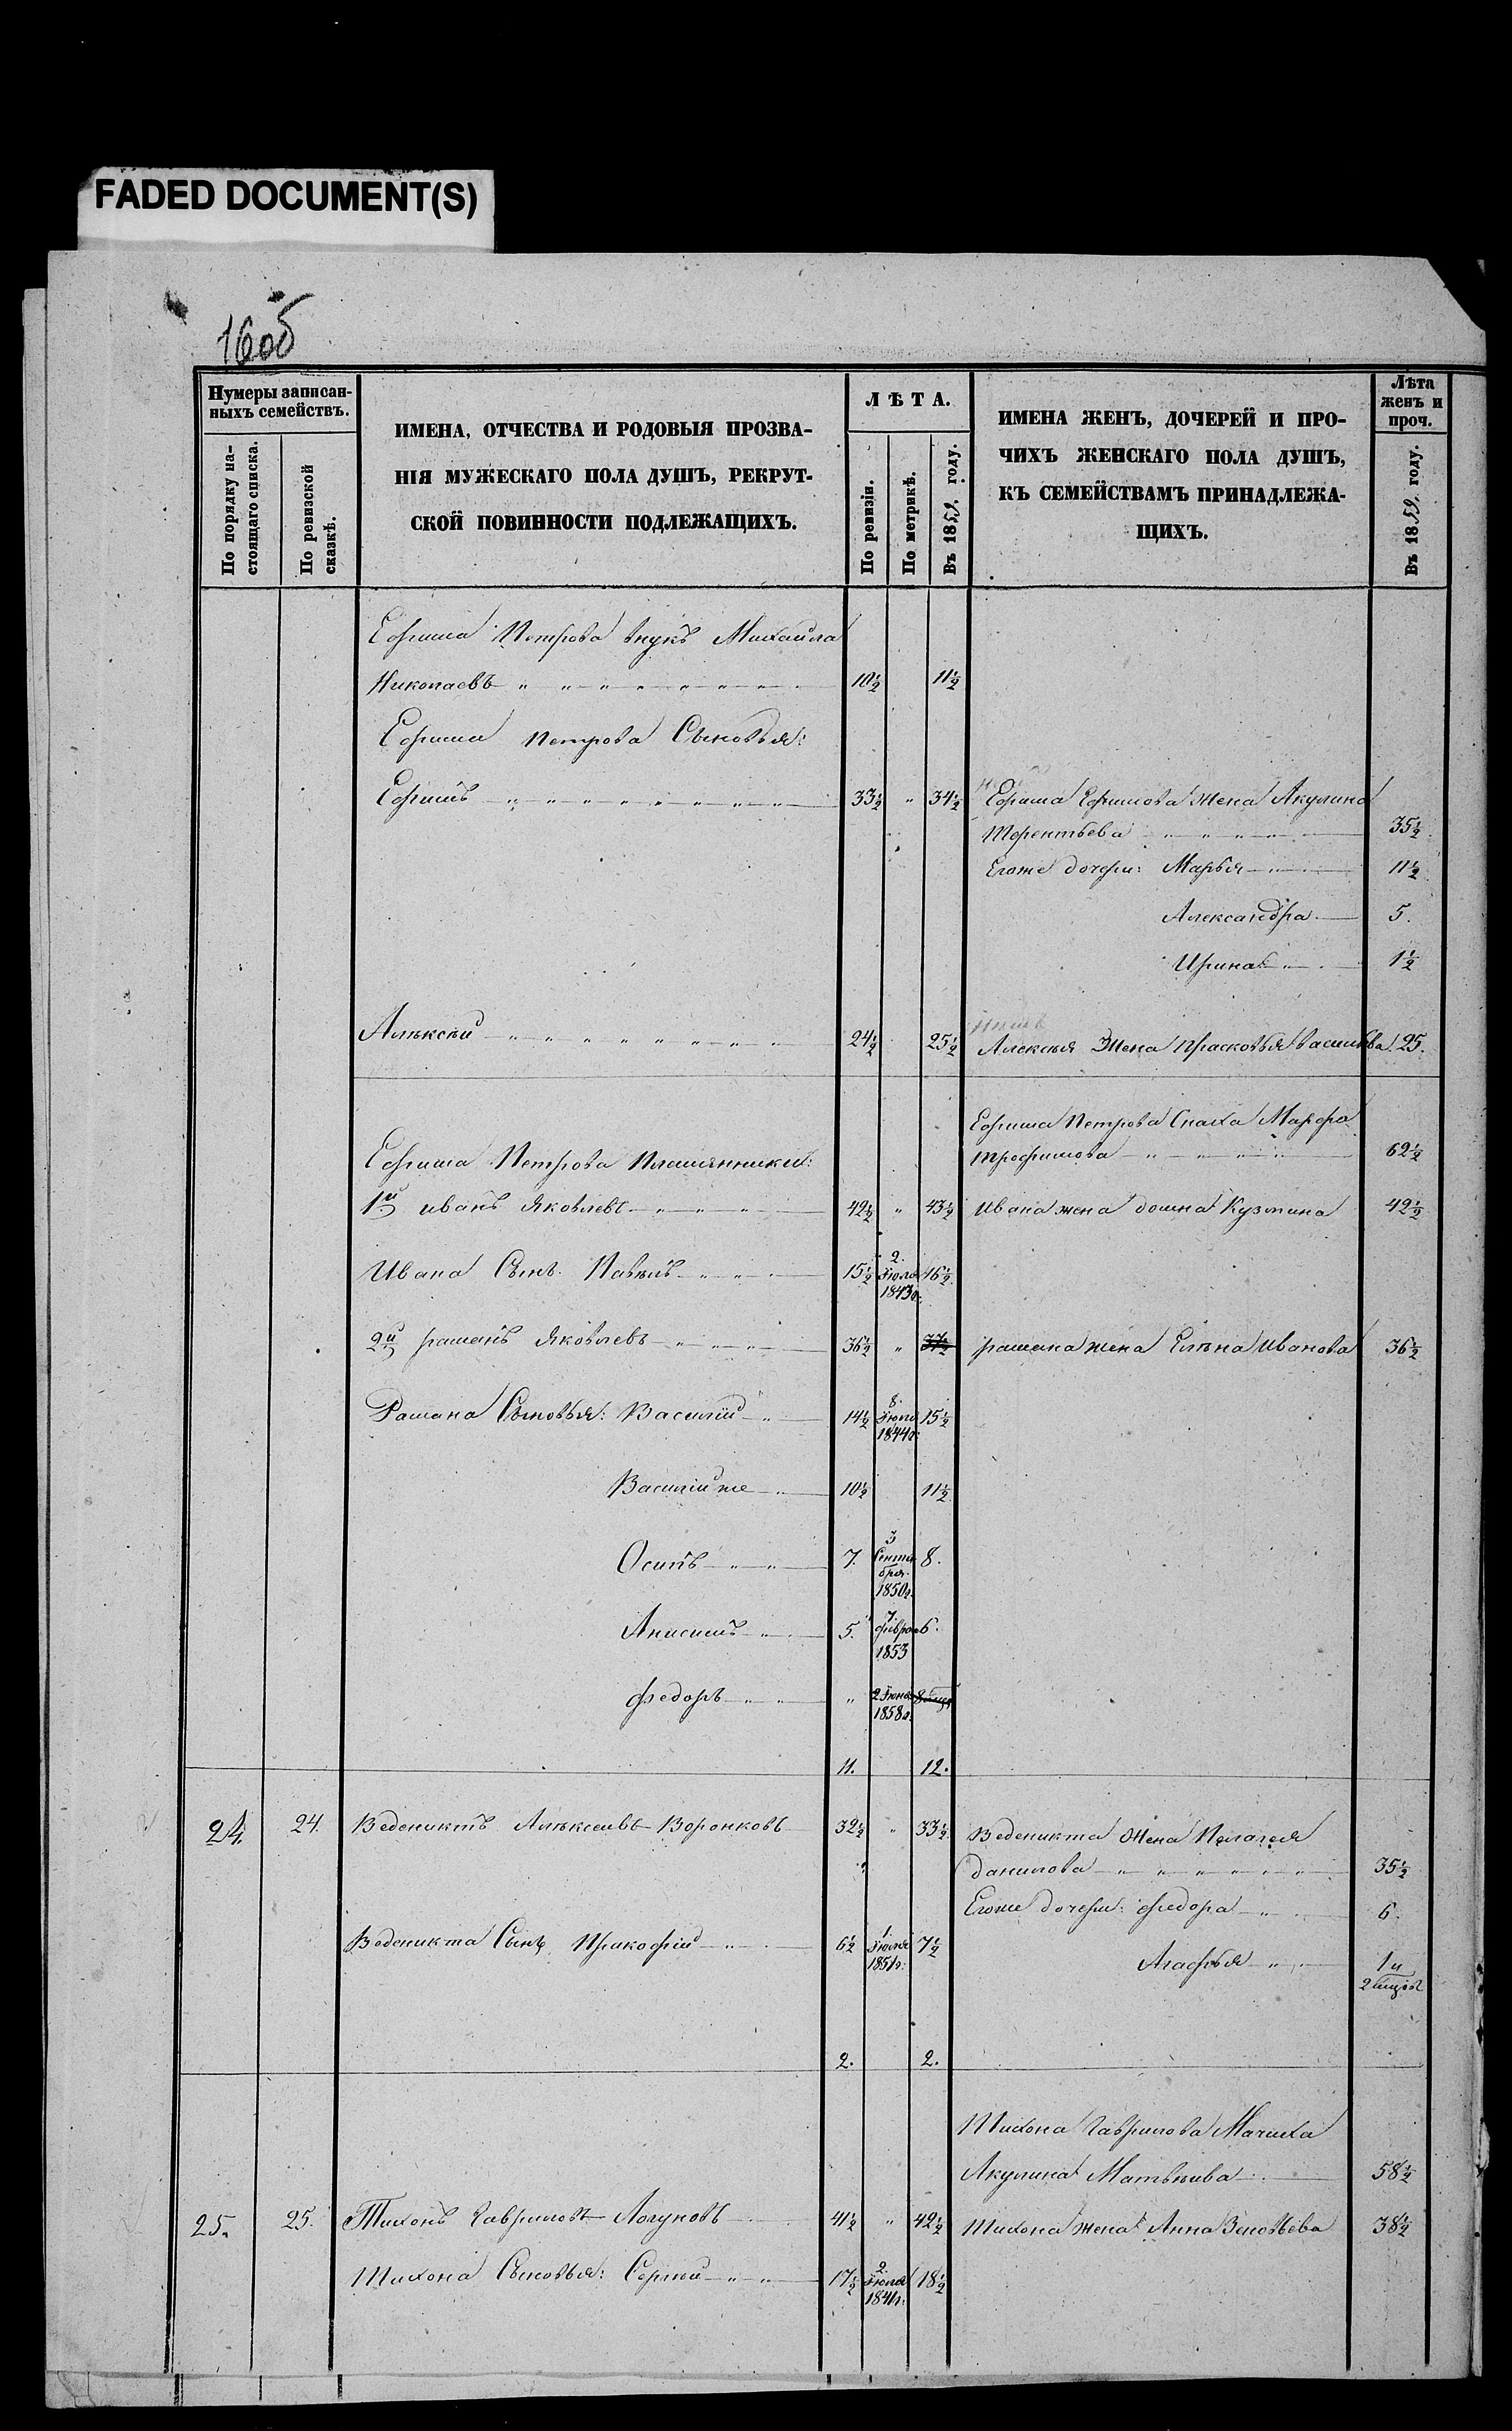 FADED DOCUMENT(S)
160об
Нумеры записан-
ныхъ семействъ.
По порядку на-
стоящаго списка.
По ревизской
сказкѣ.
ИМЕНА, ОТЧЕСТВА И РОДОВЫЯ ПРОЗВА-
НІЯ МУЖЕСКАГО ПОЛА ДУШЪ, РЕКРУТ-
СКОЙ ПОВИННОСТИ ПОДЛЕЖАЩИХЪ.
ЛѢТА.
По ревизіи.
По метрикѣ.
Въ 1859. году.
ИМЕНА ЖЕНЪ, ДОЧЕРЕЙ И ПРО-
ЧИХЪ ЖЕНСКАГО ПОЛА ДУШЪ,
КЪ СЕМЕЙСТВАМЪ ПРИНАДЛЕЖА-
ЩИХЪ.
Лѣта
женъ и
проч.
Въ 1859. году.
Ефима Петрова внукъ Михайла
Николаевъ 10½ 11½
Ефима Петрова Сыновья:
Ефимъ 33½ " 34½ Ефима Ефимова Жена Акулина
Терентьева 35½
Егоже дочери: Марья 11½
Александра 5.
Ирина 1½
Алѣксѣй 24½ 25½ Алексѣя Жена Прасковья Васильева 25.
Ефима Петрова Сноха Марфа
Трофимова 62½
Ефима Петрова Племянники:
1й Иванъ Яковлевъ 42½ " 43½ Ивана жена Домна Кузмина 42½
Ивана Сынъ Павелъ 15½ 2. Іюля 1843г. 16½
2й раманъ Яковлевъ 36½ " 37½ рамана жена Елѣна Иванова 36½
Рамана Сыновья: Василій 14½ 8. Іюля 1844г. 15½
Василій же 10½ 11½
Осипъ 7. 3 Сентября 1850г. 8.
Анисимъ 5. 7. февраля 1853 6.
Федоръ " 2 Іюня 1858г.
11. 12.
24. 24. Веденихтъ Алѣксеевъ Воронковъ 32½ " 33½ Веденикта Жена Пелагея
Данилова 35½
Егоже дочери: Федора 6.
Веденикта Сынъ Пракофій 6½ 1 Іюля 1851г: 7½
Агафья 1 и
2 мцовъ
2. 2.
Тихона Гаврилова Мачиха
Акулина Матвѣива 58½
25. 25. Тихонъ Гавриловъ Логуновъ 41½ " 42½ Тихона жена Анна Зеновьева 38½
Тихона Сыновья: Сергѣй 17½ 2. Іюля 1841г: 18½